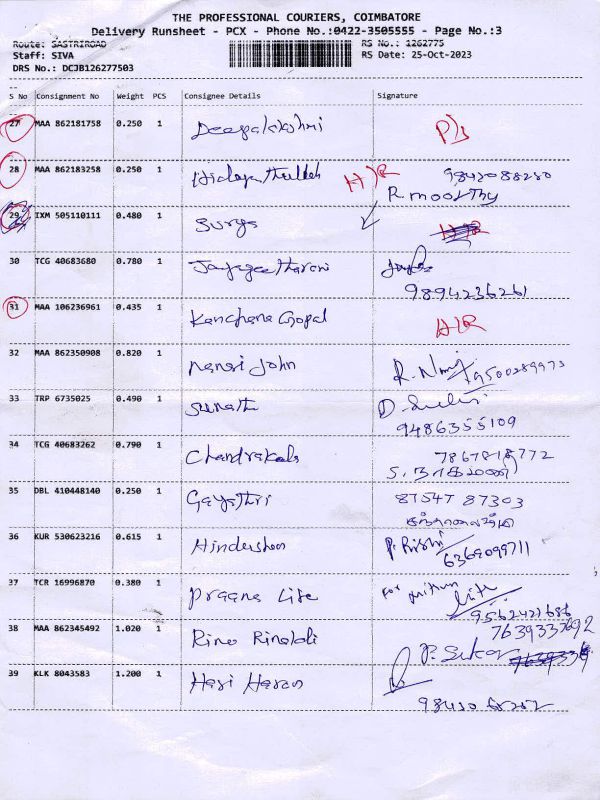 THE PROFESSIONAL COURIERS, COIMBATORE
Delivery Runsheet - PCX - Phone No.:0422-3505555 - Page No.:3
Route: SASTRIROAD RS No.: 1262775
Staff: SIVA RS Date: 25-Oct-2023
DRS No.: DCJB126277503
S No Consignment No Weight PCS Consignee Details Signature
27 MAA 862181758 0.250 1 Deepalakshmi P/s
28 MAA 862183258 0.250 1 H/R
R. moorthy
29 IXM 505110111 0.480 1 Surya
30 TCG 40683680 0.780 1 Jayageetharani
9894236261
31 MAA 106236961 0.435 1 Kanchana Gopal H/R
32 MAA 862350908 0.820 1 nansi John 9500289973
33 TRP 6735025 0.490 1
9486355109
34 TCG 40683262 0.790 1 Chandrakala
35 DBL 410448140 0.250 1 Gayathri 87547 87303
36 KUR 530623216 0.615 1 P. Rishi
6369099711
37 TCR 16996870 0.380 1 Praana Life for
life
38 MAA 862345492 1.020 1 Rino Rinaldi
39 KLK 8043583 1.200 1 Hari Haran